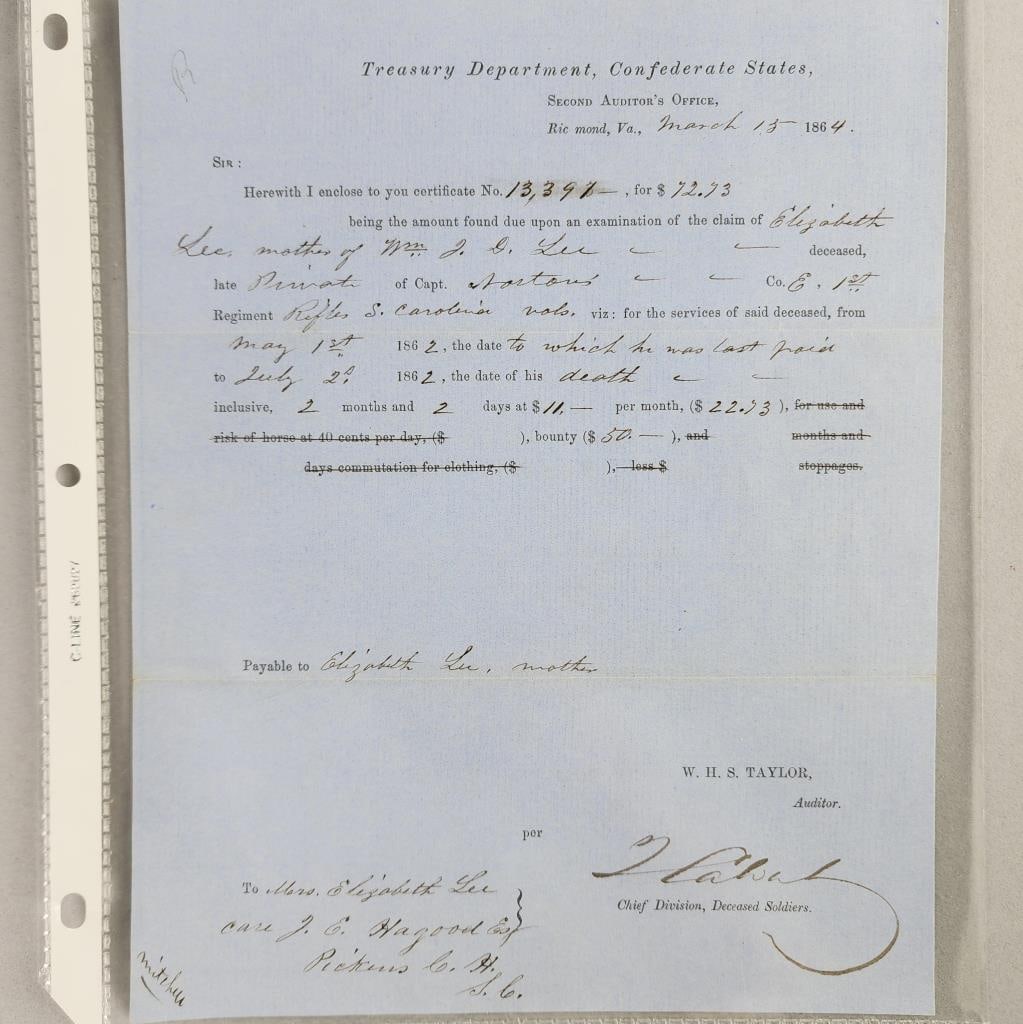 Treasury Department, Confederate States,
Second Auditor's Office,
Ric mond, Va., March 15 1864.
Sir:
Herewith I enclose to you certificate No. 13,391—, for $ 72.73
being the amount found due upon an examination of the claim of Elizabeth
Lee, mother of Wm. J. D. Lee deceased,
late Private of Capt. Nortons' Co. E. 1st
Regiment Rifles S. Carolina vols. viz: for the services of said deceased, from
May 1st 1862, the date to which he was last paid
to July 2d. 1862, the date of his death
inclusive, 2 months and 2 days at $11.— per month, ($22.73), for use and
risk of horse at 40 cents per day, ($ ), bounty ($50.—), and months and
days commutation for clothing, ($ ), less $ stoppages.
Payable to Elizabeth Lee, mother
W. H. S. TAYLOR,
Auditor.
per
Chief Division, Deceased Soldiers.
To Mrs. Elizabeth Lee
care J. E. Hagood Esq
Pickens C. H.
S. C.
Mitchell
C-LINE